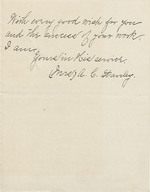 With every good wish for you
and the success of your work
I am,
Yours in His service
Mrs. A. C. Stanley.